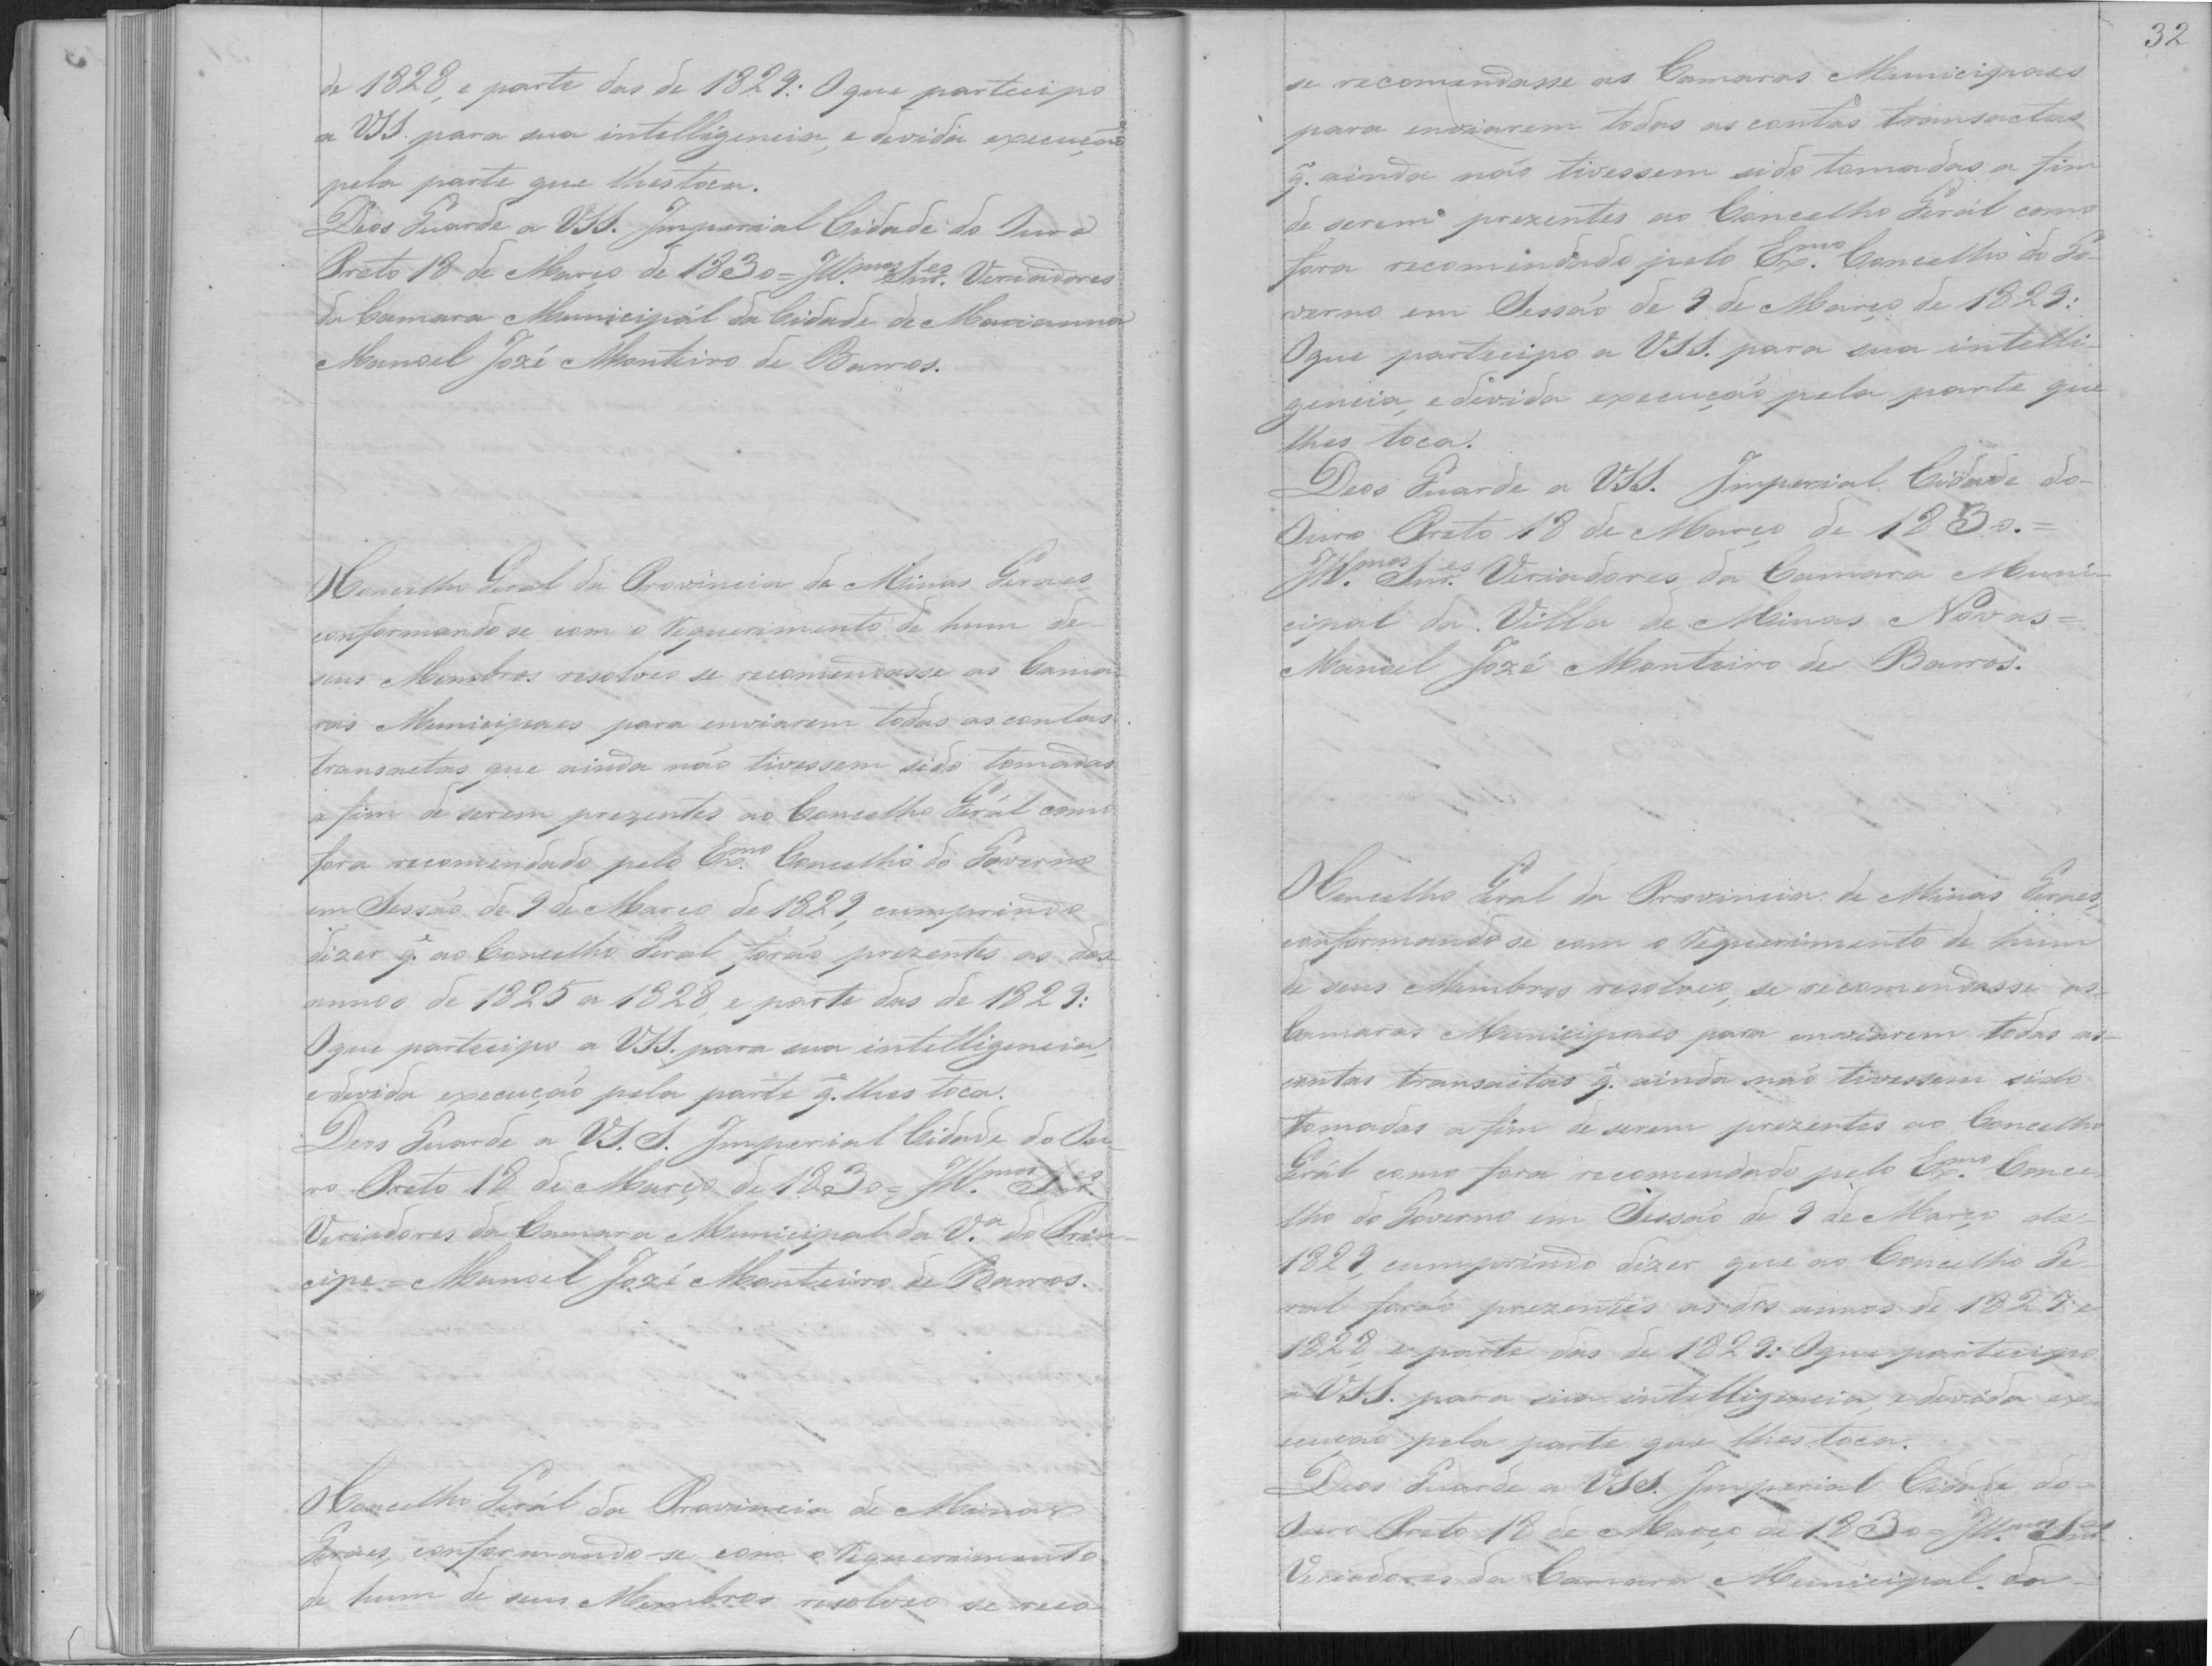 de 1828, e parte das de 1829: O que partecipo
a VSS. para sua intelligencia, e devida execução
pela parte que lhes toca.
Deos Guarde a VSS. Imperial Cidade do Ouro
Preto 18 de Março de 1830 = Ill.mos Snr.es Veriadores
da Camara Municipál da Cidade de Marianna
Manoel Jozé Monteiro de Barros.
O Concelho Geral da Provincia de Minas Geraes
conformando se com o requerimento de hum de
seus Membros resolveo se recomendasse as Cama-
ras Municipaes para enviarem todas as contas
transactas que ainda não tivessem sido tomadas
a fim de serem prezentes ao Concelho Gerál como
fora recomendado pelo Ex.mo Concelho do Governo
em Sessão de 9 de Março de 1829, cumprindo
dizer q̃. ao Concelho Geral forão prezentes as dos
annos de 1825 a 1828, e parte das de 1829:
O que partecipo a VSS. para sua intelligencia,
e devida execução pela parte q̃. lhes toca.
Deos Guarde a VS.S. Imperial Cidade do Ou-
ro Preto 18 de Março de 1830 = Ill.mos Snr.es
Veriadores da Camara Municipal da V.a do Prin-
cipe = Manoel Jozé Monteiro de Barros.
O Concelho Gerál da Provincia de Minas
Geraes, conformando-se com o requerimento
de hum de seus Membros resolveo se reco
32
se recomendasse as Camaras Municipaes
para enviarem todas as contas transactas
q̃. ainda não tivessem sido tomadas a fim
de serem prezentes ao Concelho Gerál como
fora recomendado pelo Ex.mo Concelho do Go-
verno em Sessão de 9 de Março de 1829:
O que partecipo a VSS. para sua intelli-
gencia, e devida execução pela parte que
lhes toca.
Deos Guarde a VSS. Imperial Cidade do
Ouro Preto 18 de Março de 1830. =
Ill.mos Snr.es Veriadores da Camara Muni-
cipal da Villa de Minas Novas =
Manoel Jozé Monteiro de Barros.
O Concelho Geral da Provincia de Minas Geraes,
conformando se com o requerimento de hum
de seus Membros resolveo, se recomendasse as
Camaras Municipaes para enviarem todas as
contas transactas q̃. ainda não tivessem sido
tomadas a fim de serem prezentes ao Concelho
Gerál como fora recomendado pelo Ex.mo Conce-
lho do Governo em Sessão de 9 de Março de
1829, cumprindo dizer que ao Concelho Ge-
ral forão prezentes as dos annos de 1827 e
1828, e parte das de 1829: O que partecipo
a VSS. para sua intelligencia, e devida ex-
ecução pela parte que lhes toca.
Deos Guarde a VSS. Imperial Cidade do
Ouro Preto 18 de Março de 1830 = Ill.mos Snr.es
Veriadores da Camara Municipal da